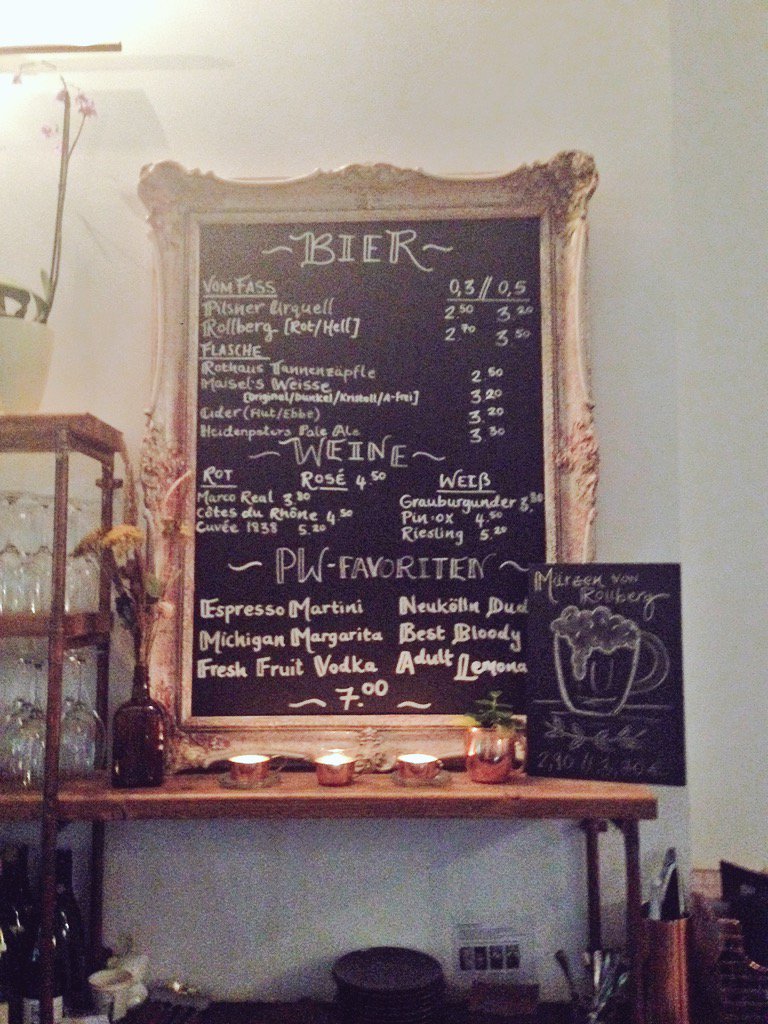 ~BIER~
VOM FASS 0,3 // 0,5
Pilsner Urquell 2.50 3.20
Rollberg [Rot/Hell] 2.70 3.50
FLASCHE
Rothaus Tannenzäpfle 2.50
Maisel's Weisse 3.20
[Original/Dunkel/Kristall/A-frei]
Cider (Flut/Ebbe) 3.20
Heidenpeters Pale Ale 3.30
~WEINE~
ROT
Marco Real 3.30
Côtes du Rhône 4.50
Cuvée 1838 5.20
ROSÉ 4.50
WEIß
Grauburgunder 3.30
Pin-ox 4.50
Riesling 5.20
~PW-FAVORITEN~
Espresso Martini
Michigan Margarita
Fresh Fruit Vodka
Neukölln
Best Bloody
Adult
~ 7.00 ~
Märzen von
Rollberg